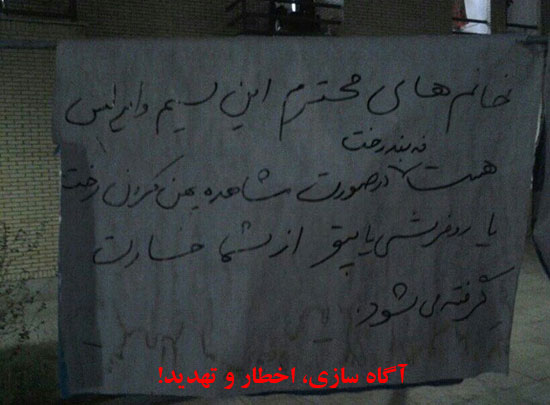 خانم های محترم این سیم وایرلس
نه بند رخت
هست درصورت مشاهده پهن کردن رخت
یا روفرشی یا پتو از شما خسارت
گرفته می شود.
آگاه سازی، اخطار و تهدید!